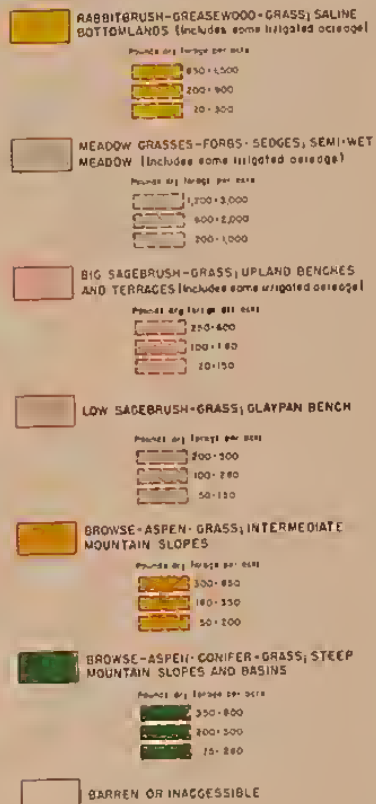 RABBITBRUSH-GREASEWOOD-GRASS; SALINE
BOTTOMLANDS (Includes some irrigated acreage)
Pounds dry forage per acre
850-1,500
200-900
20-300
MEADOW GRASSES-FORBS-SEDGES; SEMI-WET
MEADOW (Includes some irrigated acreage)
Pounds dry forage per acre
1,200-3,000
600-2,000
200-1,000
BIG SAGEBRUSH-GRASS; UPLAND BENCHES
AND TERRACES (Includes some irrigated acreage)
Pounds dry forage per acre
250-600
20-150
LOW SAGEBRUSH-GRASS; CLAYPAN BENCH
Pounds dry forage per acre
200-500
50-150
BROWSE-ASPEN-GRASS; INTERMEDIATE
MOUNTAIN SLOPES
Pounds dry forage per acre
300-650
50-200
BROWSE-ASPEN-CONIFER-GRASS; STEEP
MOUNTAIN SLOPES AND BASINS
Pounds dry forage per acre
350-800
200-500
BARREN OR INACCESSIBLE